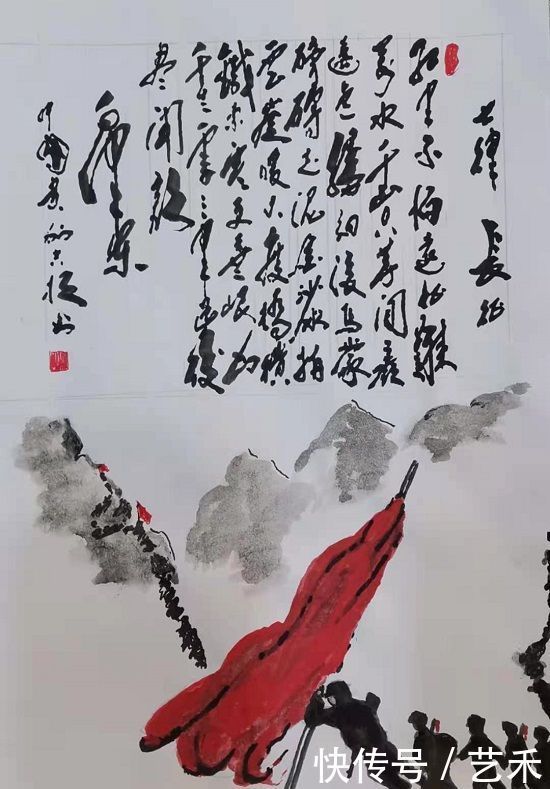 七律 長征
红軍不怕遠征難
萬水千山只等閒五嶺
逶迤騰細浪烏蒙
磅礴走泥丸金沙水拍
雲崖暖大渡橋横
鐵索寒更喜岷山
千里雪三軍過後
盡開顔
毛澤東
书
快传号 / 艺禾